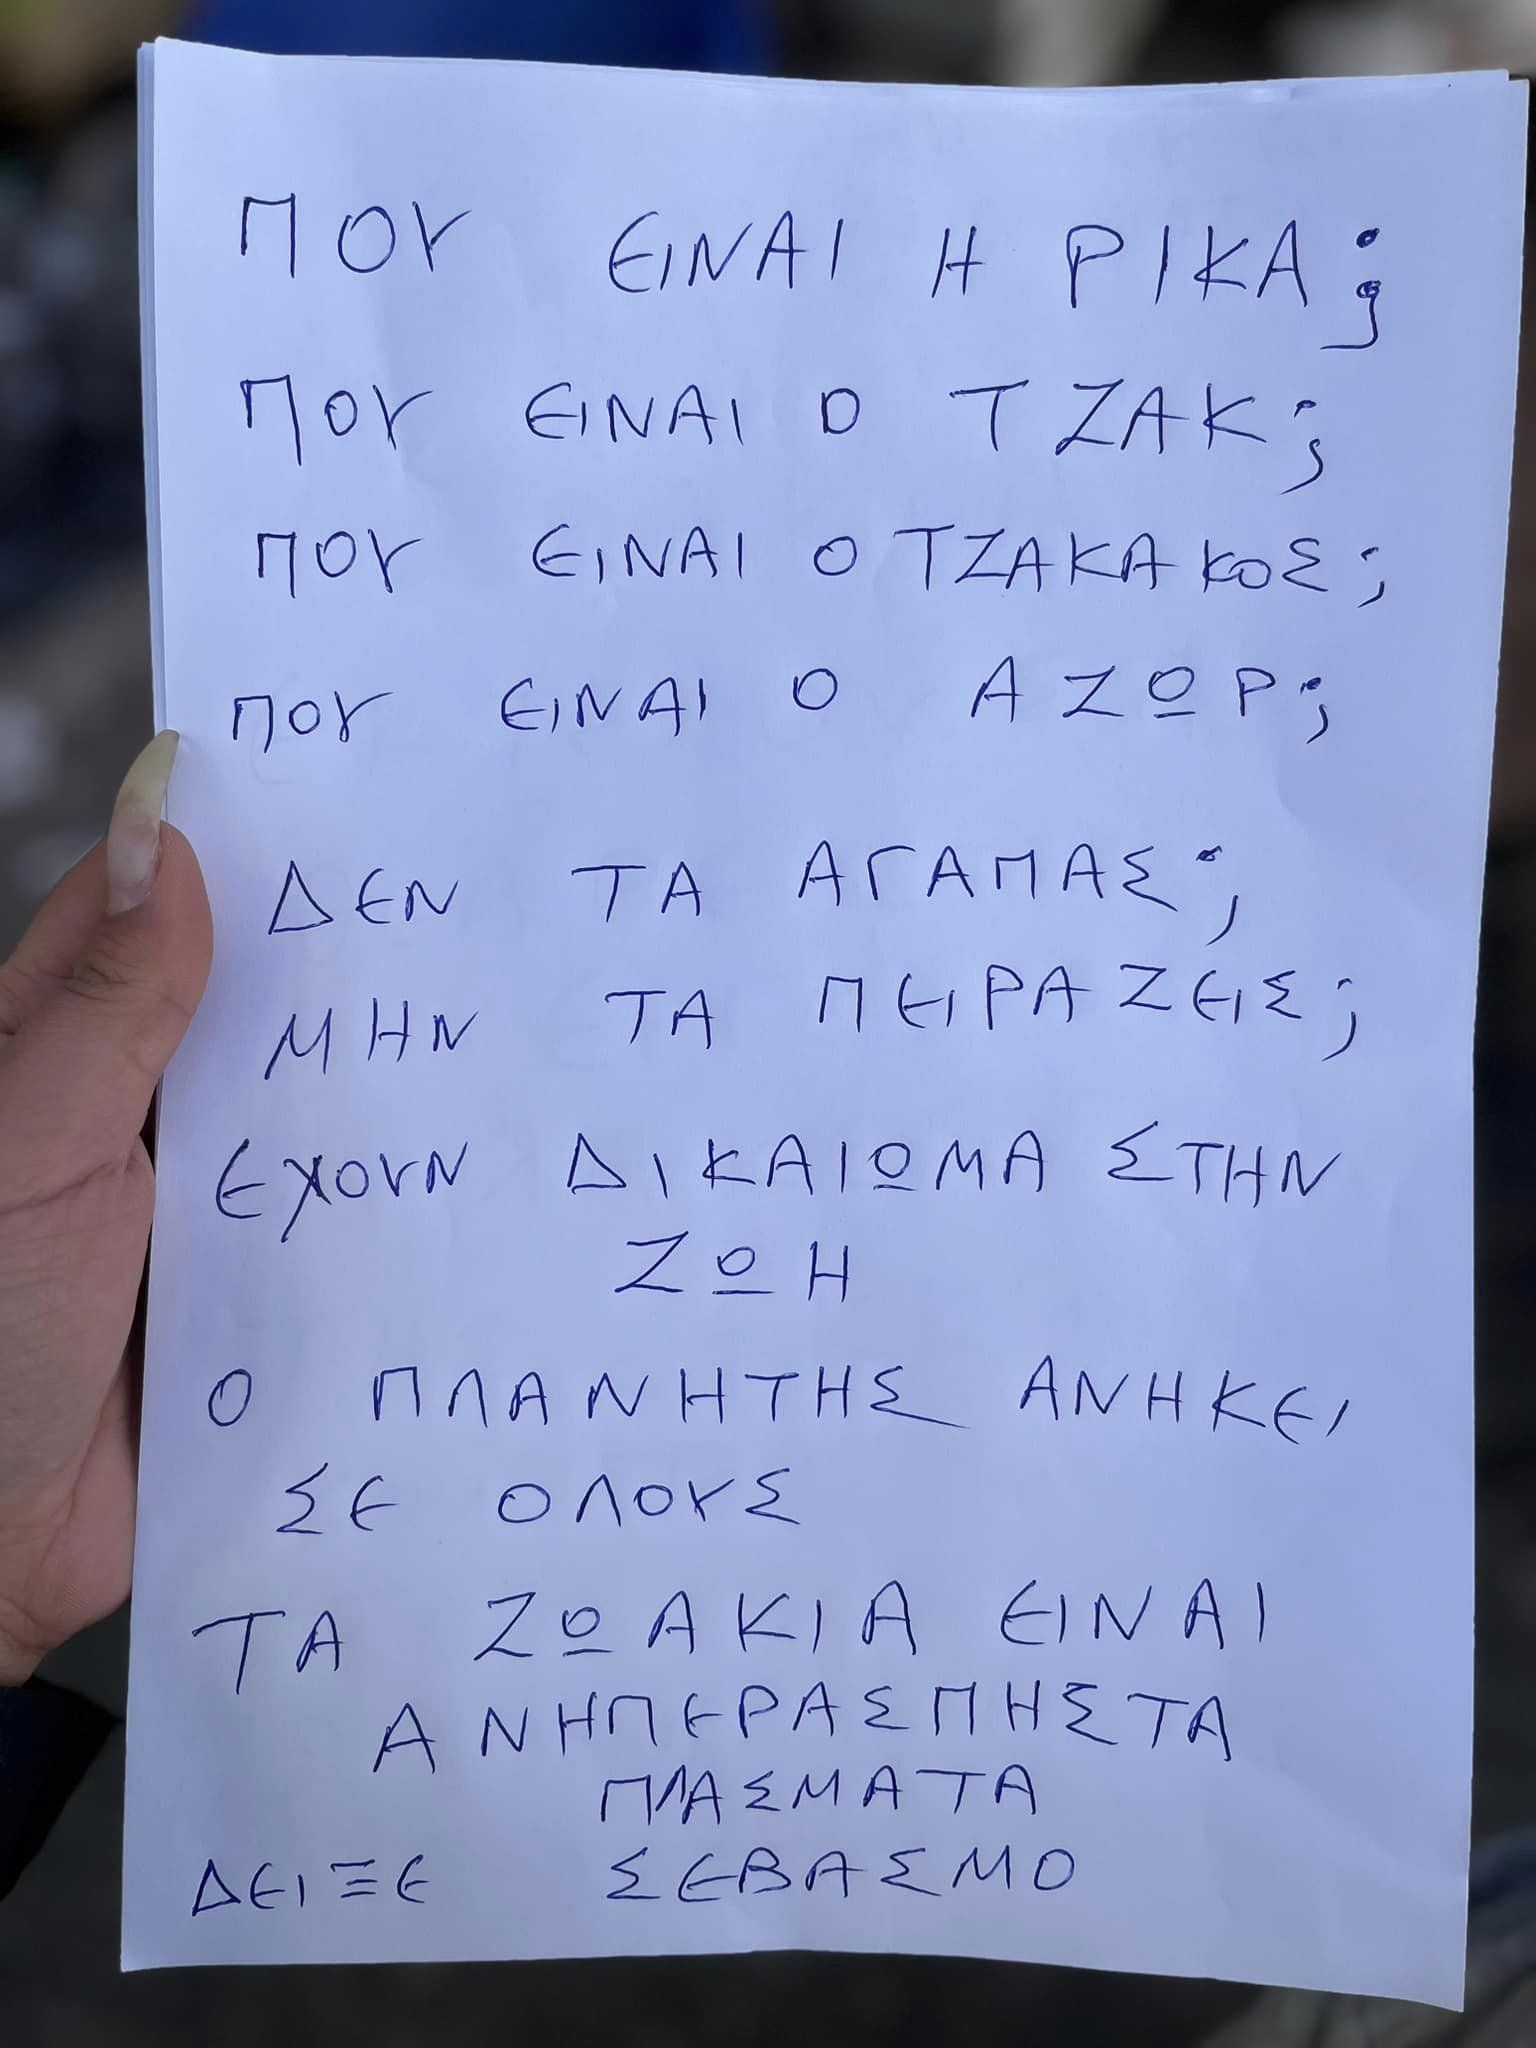 ΠΟΥ ΕΙΝΑΙ Η ΡΙΚΑ;
ΠΟΥ ΕΙΝΑΙ Ο ΤΖΑΚ;
ΠΟΥ ΕΙΝΑΙ Ο ΤΖΑΚΑΚΟΣ;
ΠΟΥ ΕΙΝΑΙ Ο ΑΖΩΡ;
ΔΕΝ ΤΑ ΑΓΑΠΑΣ;
ΜΗΝ ΤΑ ΠΕΙΡΑΖΕΙΣ;
ΕΧΟΥΝ ΔΙΚΑΙΩΜΑ ΣΤΗΝ
ΖΩΗ
Ο ΠΛΑΝΗΤΗΣ ΑΝΗΚΕΙ
ΣΕ ΟΛΟΥΣ
ΤΑ ΖΩΑΚΙΑ ΕΙΝΑΙ
ΑΝΗΠΕΡΑΣΠΗΣΤΑ
ΠΛΑΣΜΑΤΑ
ΔΕΙΞΕ ΣΕΒΑΣΜΟ